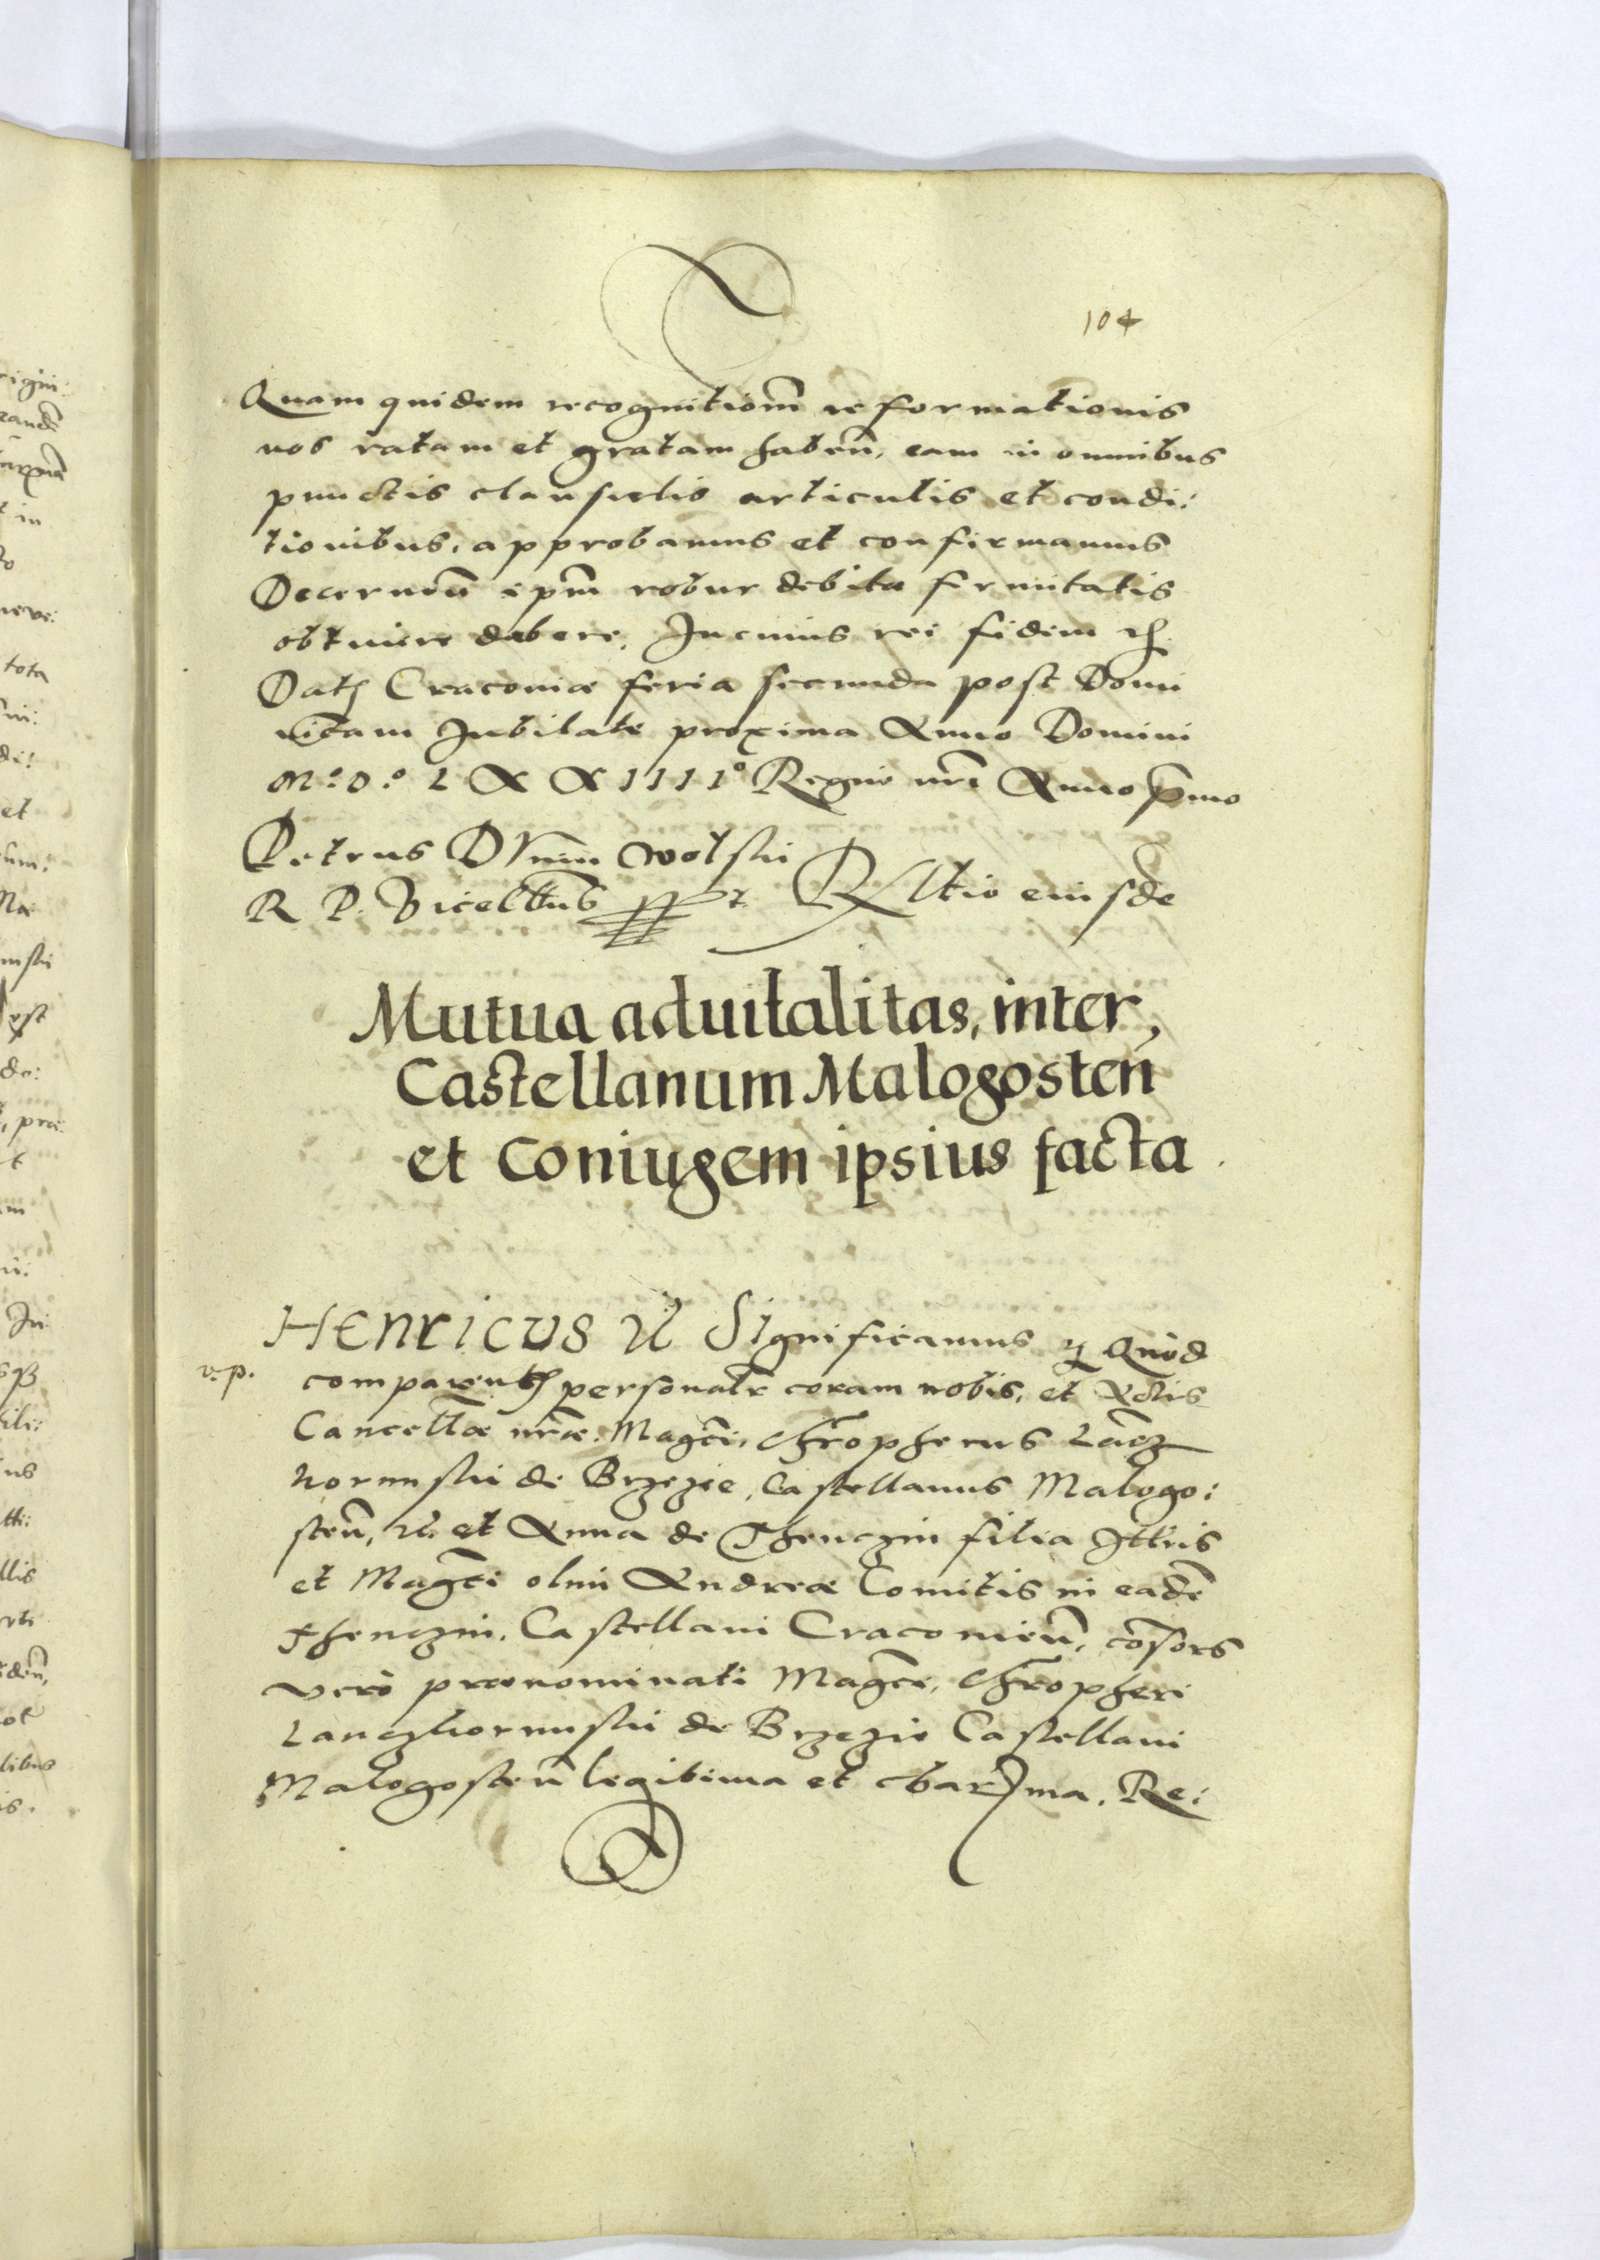 104
Quam quidem recognitionem̄ reformationis
nos ratam et gratam haben̄, eam in omnibus
punctis clausulis articulis et condi:
tionibus, approbamus et confirmamus
Decernen̄ ip̄m robur debitæ firmitatis
obtinere debere, In cuius rei fidem
Dat Cracoviæ feria secunda post Domi
nicam Jubilate proxima Anno Domini
Mº.Dº. LXXIIIIº Regni nr̄i Anno p̄mo
Petrus Dunin Wolski
R P. Vicecll̄us Rltio eiusde
Mutua aduitalitas, inter,
Castellanum Malogosten̄
et Coniugem ipsius facta
Henricus Significamus Quòd
v: p. comparentes personal̄r coram nobis, et Actis
Cancell̄æ nr̄æ. Magc̄i. Chr̄opherus Lan̄cz
koronskii de Brzezie, Castellanus Malogo:
sten̄, et Anna de Thenczin filia Ill̄ris
et Magc̄i olim Andreæ Comitis in eadē
Thenczin. Castellani Cracovien̄, cōsors
verò prænominati Magc̄i, Chr̄opheri
Lanczkoronskii de Brzezie Castellani
Malogosten̄ legitima et charma. Re: